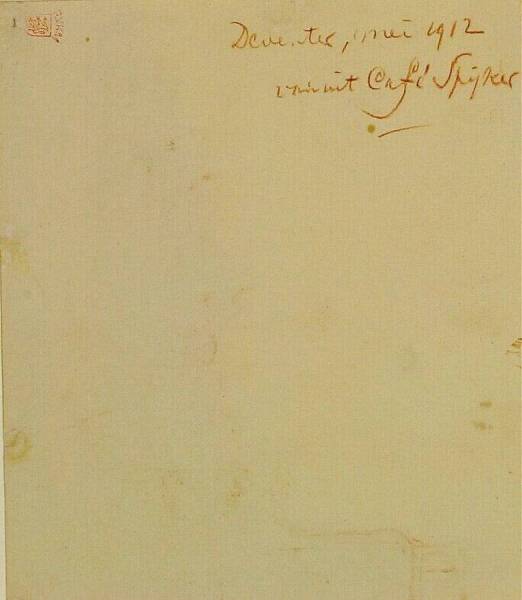 Deventer, mei 1912
vanuit Café Spijker